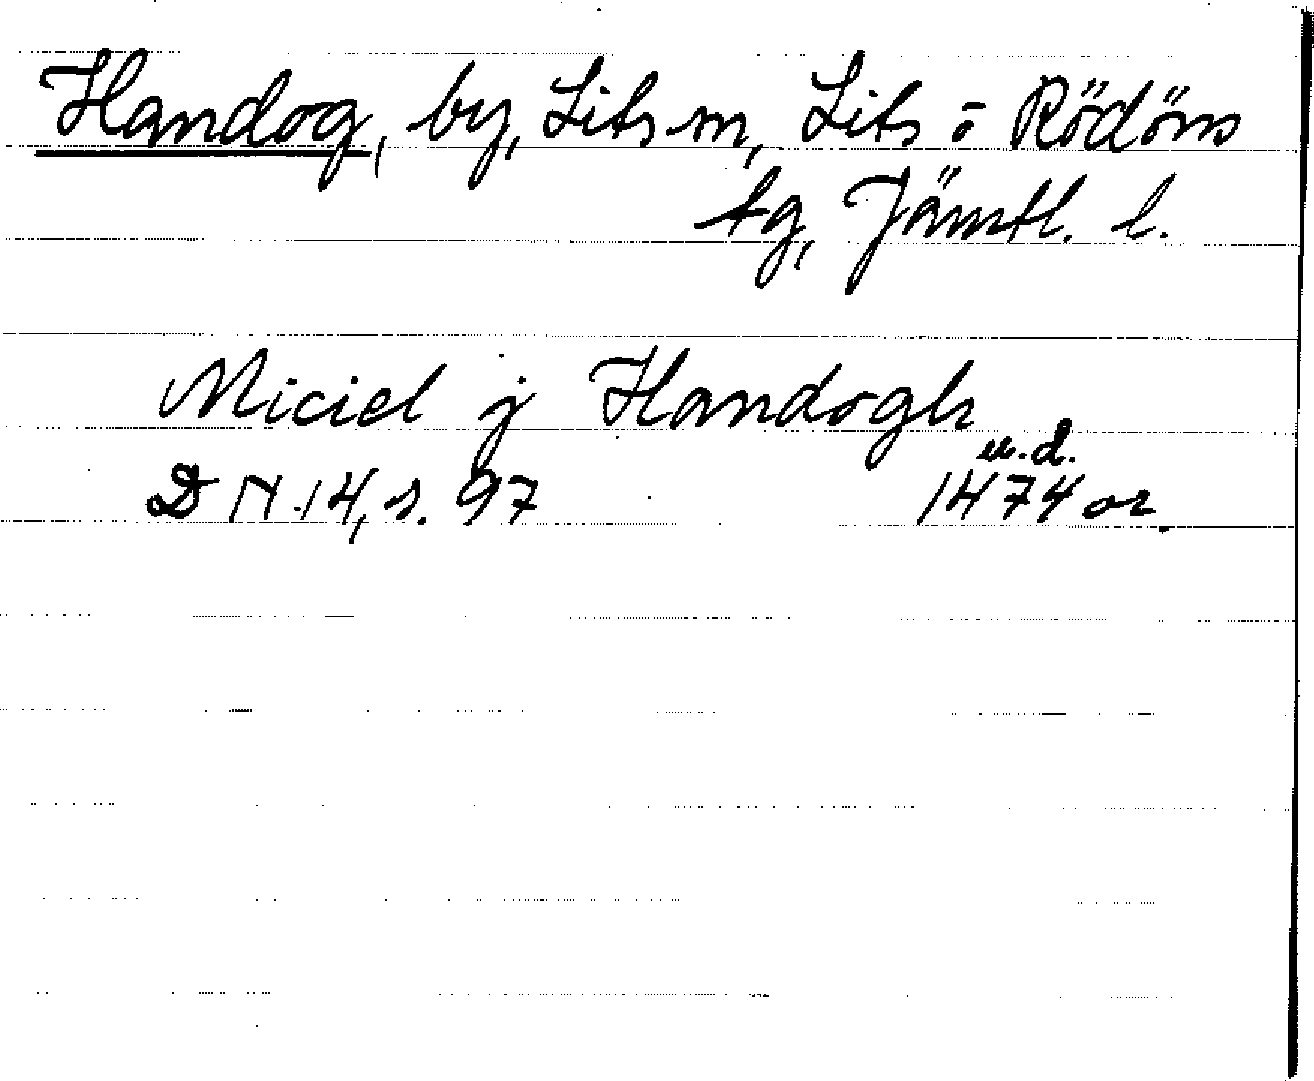 Handog, by, Lits sn, Lits o Rödöns
tg, Jämtl. l.
Miciel j Handogh
u.d.
DN 14, s. 97 1474 or.